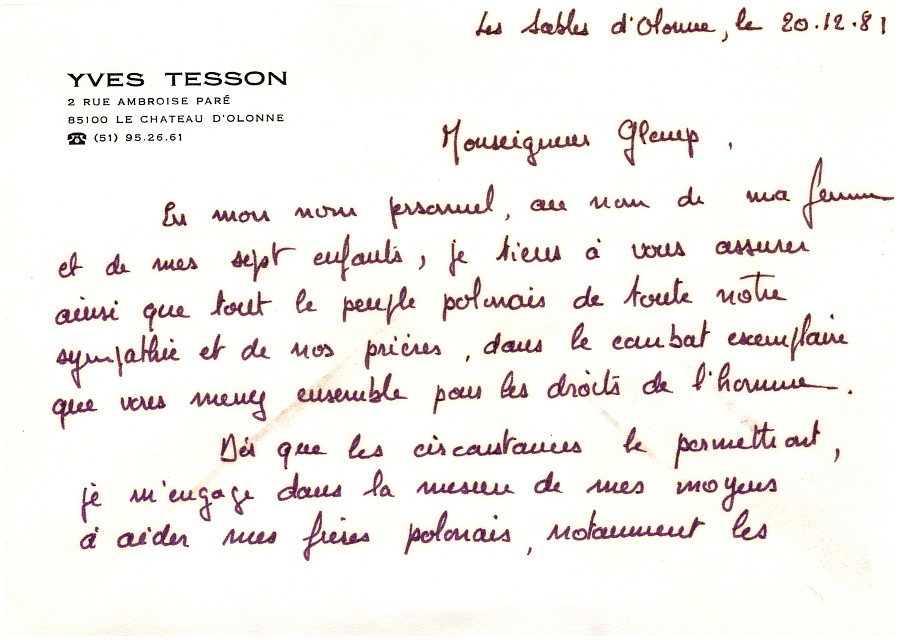 Les Sables d'Olonne, le 20.12.81
YVES TESSON
2 RUE AMBROISE PARÉ
85100 LE CHATEAU D'OLONNE
☎ (51) 95.26.61
Monseigneur Glemp,
En mon nom personnel, au nom de ma femme
et de mes sept enfants, je tiens à vous assurer
ainsi que tout le peuple polonais de toute notre
sympathie et de nos prières, dans le combat exemplaire
que vous menez ensemble pour les droits de l'homme.
Dès que les circonstances le permettront,
je m'engage dans la mesure de mes moyens
à aider mes frères polonais, notamment les